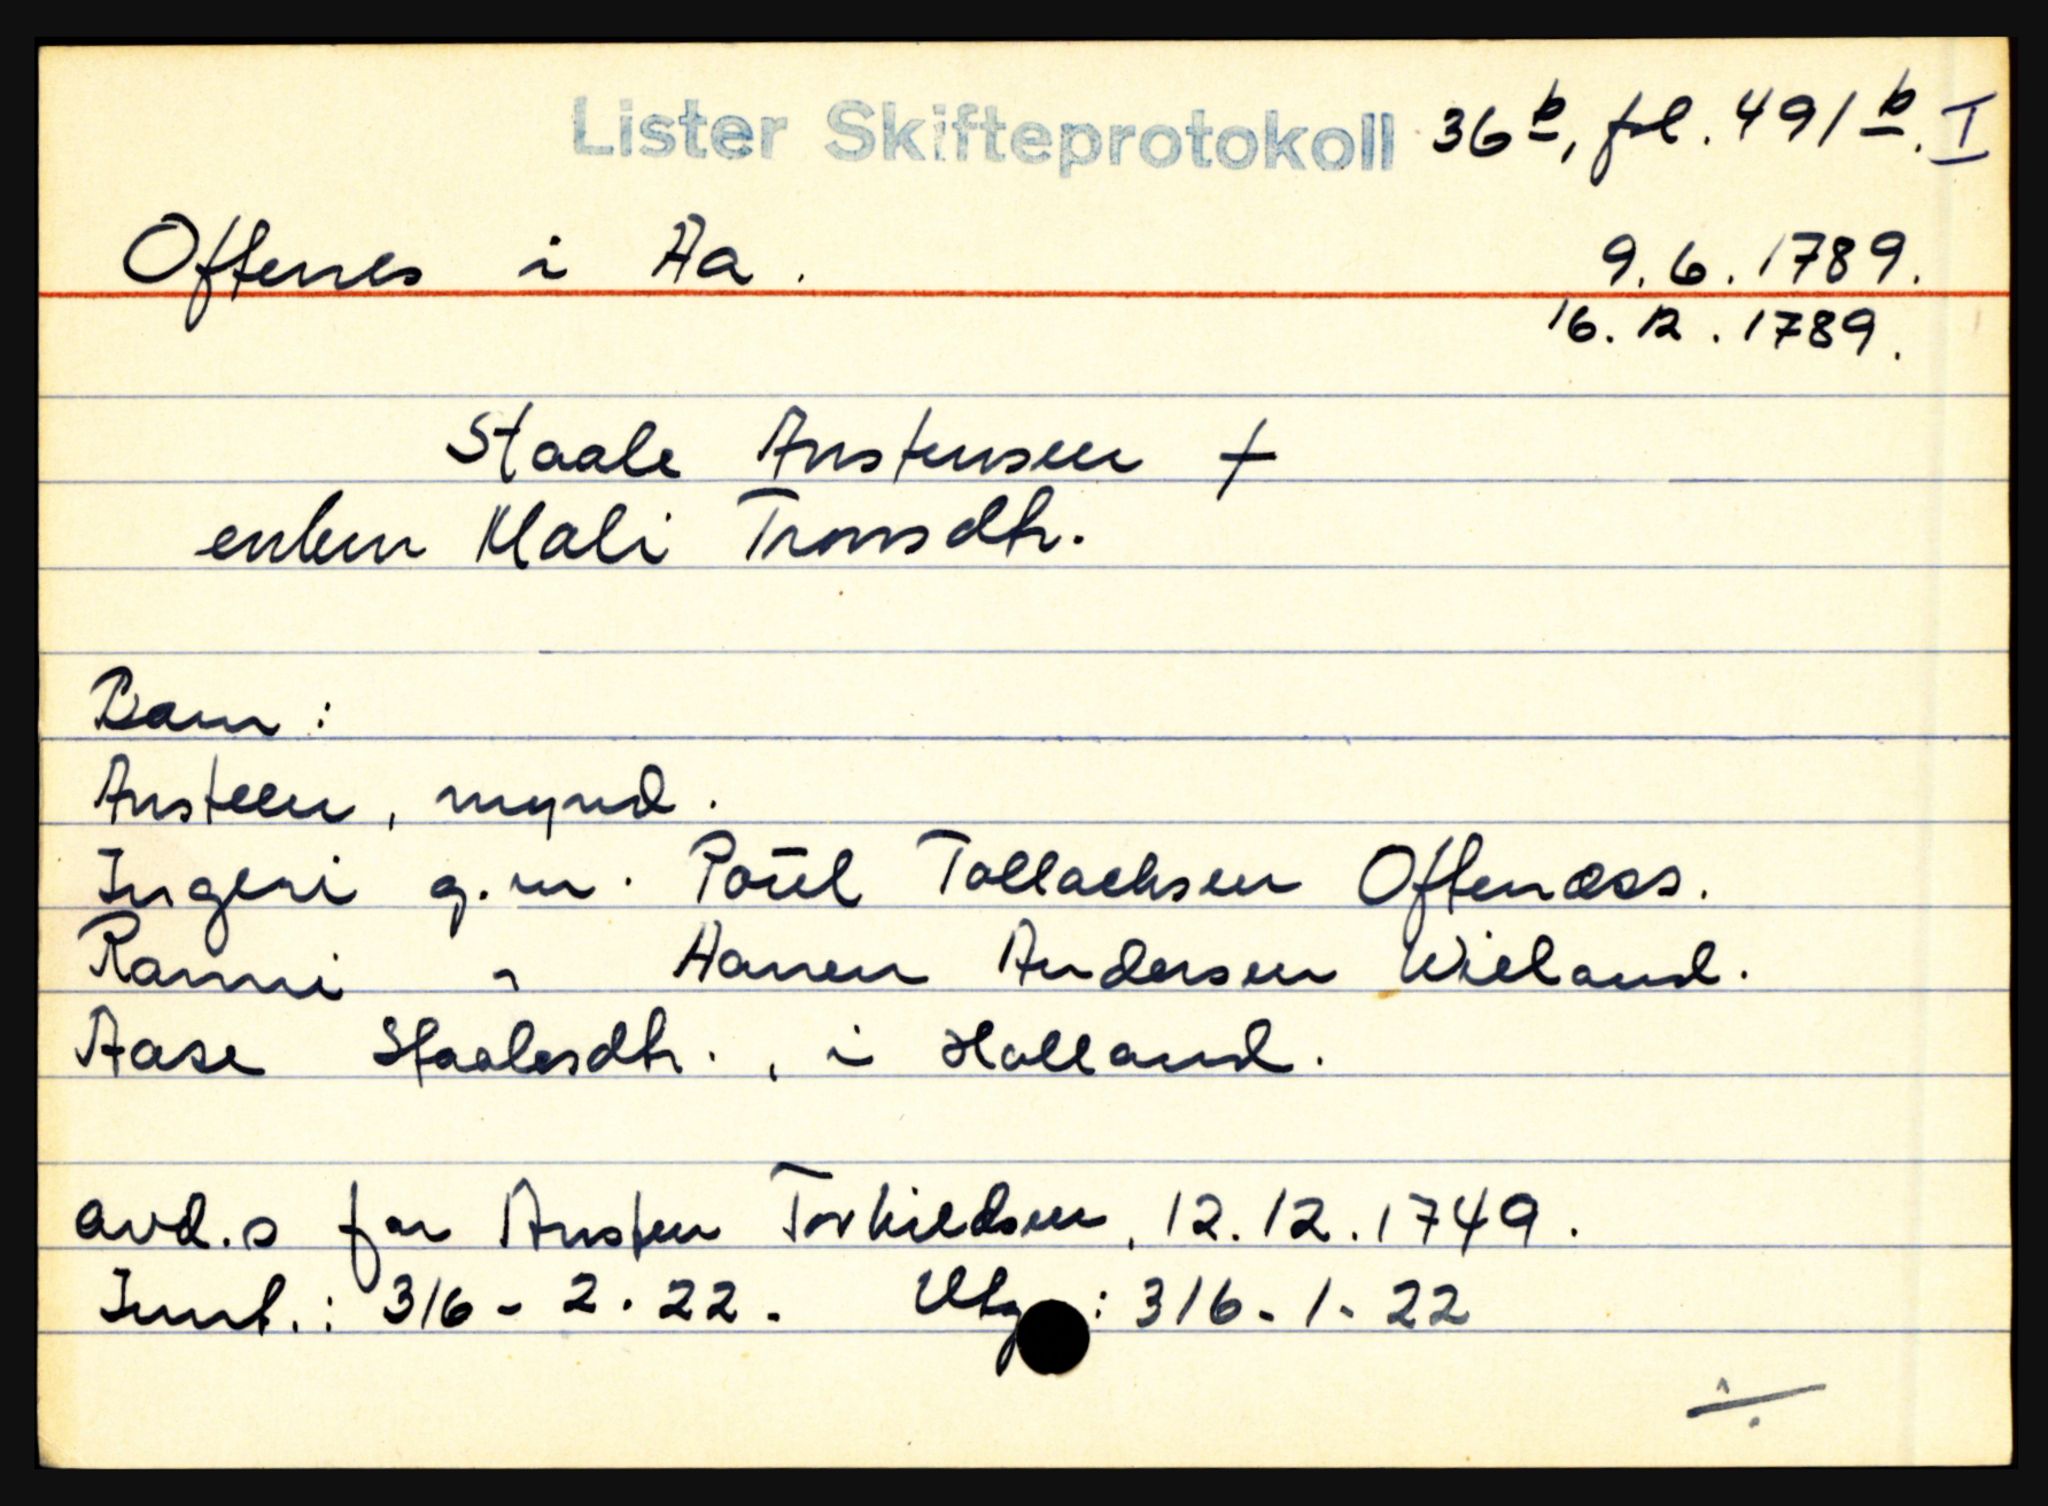 Lister Skifteprotokoll 36b, fol. 491b. I
Oftenes i Aa. 9.6.1789.
16.12.1789.
Staale Anstensen +
enken Mali Tronsdtr.
Barn:
Ansteen, mynd.
Ingeri g.m. Poŭl Tollachsen Oftenæs.
Ranni " Hanen Andersen Wieland.
Aase Staalesdtr., i Holland.
avd.s far Ansten Torkildsen, 12.12.1749.
Innt.: 316-2-22. Utg: 316-1-22